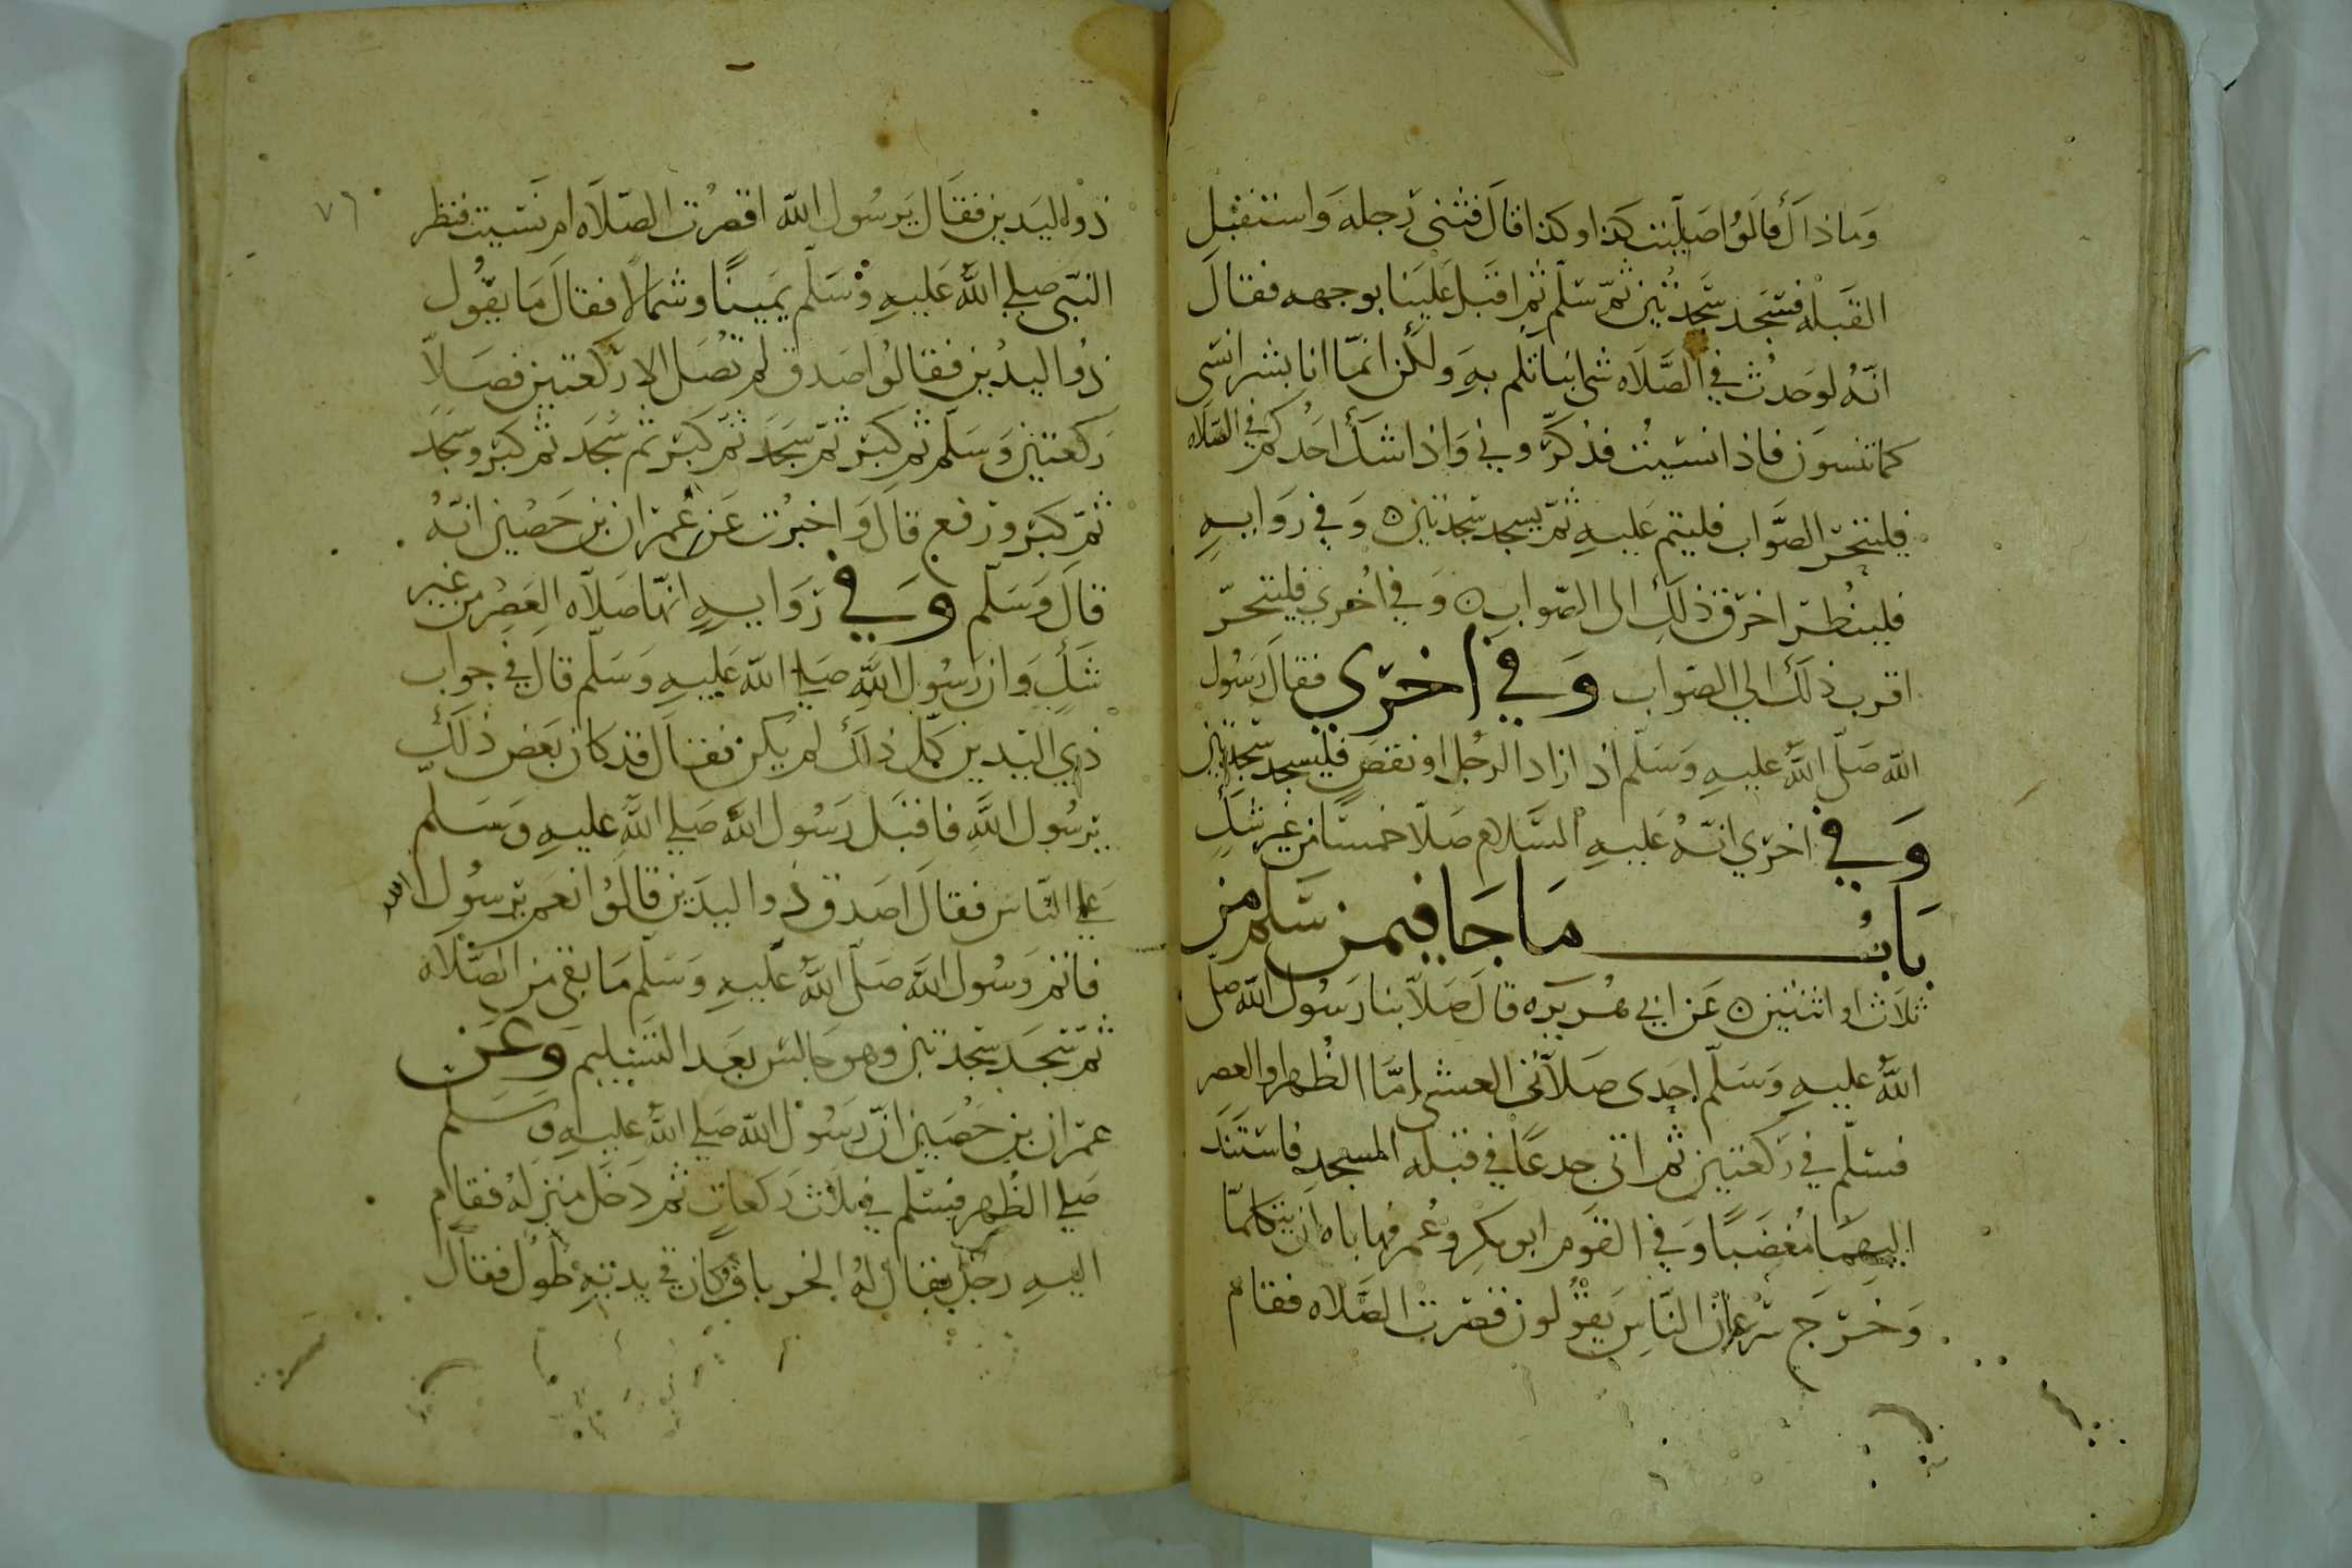 وَمَا ذَاكَ قَالَوُا صَلّيت كذا وكذا قالَ فثنى رجله وَاستقبل
القبله فسَجد سَجدتين ثمّ سَلّم ثم اقبَل عَلَينا بوجهه فقالَ
انّه لو حَدث في الصَّلاه شى انبَاتكم بهِ ولكن انمّا انا بشر انسَى
كما تنسون فاذا نسَيتُ فذكّرونى وَاذا شك احَدكم في الصّلاه
فليتحرّ الصَّواب فليتم عَليهِ ثمّ يسجد سَجدتين ه وَفي روَايهٍ
فلينظر احرَى ذلكِ الى الصّواب ه وَفي اُخرى فليتحرّ
اقرب ذلكَ الي الصَواب وَفي اُخرَي فقالَ رَسُول
الله صَلّى اللهُ عليهِ وَسَلّم اذا زاد الرجُل او نقصَ فليَسجد سَجدَتين
وَفي اخرَي انّهُ عَليهِ السَّلام صَلّا خمسًا من غير شكٍ
بَابُ مَا جَا فيمن سَلّم من
ثلاَث او اثنتين ه عَن ابي هُريَره قالَ صَلاّ بنا رَسُول الله صَلى
اللهُ عليهِ وَسَلّم احدى صَلاَتى العشي إمّا الظُهر او العصر
فسَلّم في رَكعتين ثم اتى جدعًا في قبله المسجد فاستَنَدَ
اليهَا مُغضَبًا وَفي القوم ابو بكرٍ وعُمر فهاباه اَن يتكلمّا
وَخَرَج سَرْعانُ النَاسِ يَقوُلون قصَرت الصَّلاه فقام
٧٦
ذوا اليَدين فقالَ يَرسُول الله اقصُرت الصّلاَه ام نسَيت فنظر
النبّى صلي اللهُ عَليهِ وَسَلّم يَمينًا وشمالا فقالَ مَا يقوُل
ذوُا اليدُين فقالوُا صَدق لم تصُل الا رَكعتين فصَلاّ
رَكعتين وَسَلّم ثم كبَر ثمّ سَجَدَ ثمّ كبَر ثم سَجَد ثم كبَر وسَجَدَ
ثمّ كبَر ورَفع قالَ وَاخبرُت عَن عُمَران بن حَصُين انّهُ
قالَ وَسَلّم وَفي رَوَايهٍ انّها صَلاَه العَصُر من غير
شَكٍ وَان رَسُول اللهَ صَلي الله عَليهِ وَسَلّم قالَ في جواب
ذي اليَدين كل ذلكَ لم يكن فقالَ قد كان بَعض ذلكَ
يَرسُول اللهِ فاقبَل رَسُول اللهِ صَلي اللهُ عليهِ وَسَلم
عَلي الناس فقالَ اصَدق ذوا اليدَين قالوُا نعم يَرسُول الله
فاتم رَسُول الله صَلّى اللهُ عَلَيهِ وَسَلّم مَا بقى من الصَّلاَه
ثمّ سَجَد سَجدَتين وهو جَالسٌ بعَد التسَليم وَعَن
عمَران بن حَصُين انّ رَسُول الله صَلي اللهُ عليهِ وَسَلم
صَلي الظُهر فسَلّم في ثلاَث رَكعاتٍ ثم دَخَل منزلهُ فقام
اليهِ رجُل يقال لهُ الخرباق وكان في يدَيهِ طُول فقالَ